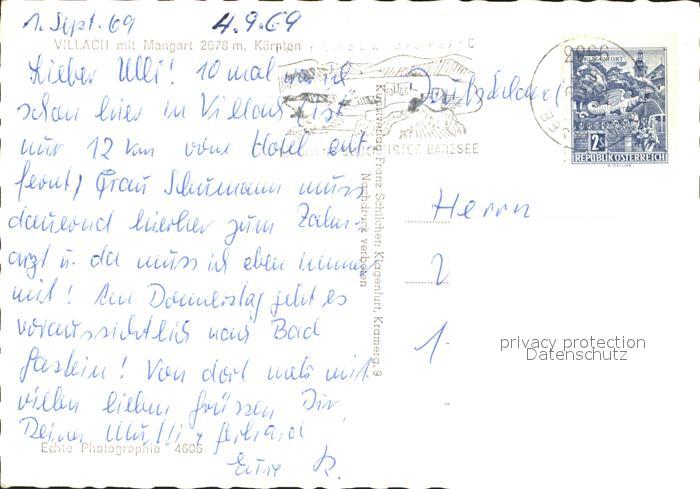 1. Sept. 69 4.9.69
VILLACH mit Mangart 2678 m, Kärnten
Lieber Ulli! 10 mal war ich
schon hier in Villach (ist
nur 12 km vom Hotel ent-
fernt) Frau Schumann muss
dauernd hierher zum Zahn-
arzt u. da muss ich eben immer
mit! Am Donnerstag geht es
voraussichtlich nach Bad
Gastein! Von dort mehr mit
vielen lieben Grüssen Dir
Deine Mutti
Echte Photographie 4606
Kunstverlag Franz Schilcher, Klagenfurt, Kramerg. 9
Nachdruck verboten
KLAGENFURT
2 S
REPUBLIK ÖSTERREICH
Herrn
privacy protection
Datenschutz